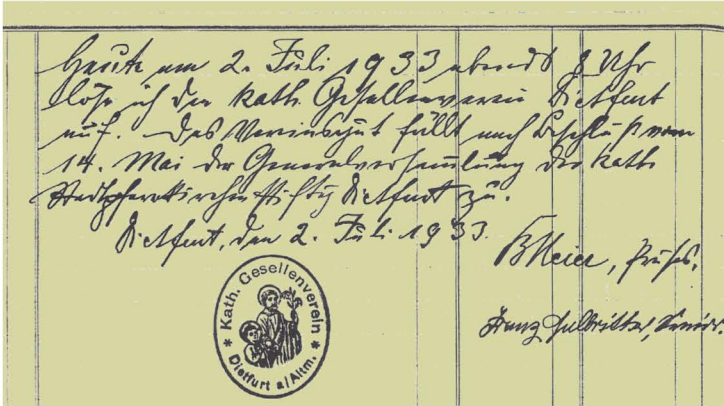 Heute am 2. Juli 1933 abends 8 Uhr
löse ich den kath. Gesellenverein Dietfurt
auf. Das Vereinsgut fällt nach Beschluß vom
14. Mai der Generalversammlung der kath.
Stadtpfarrkirchenstiftg Dietfurt zu.
Dietfurt, den 2. Juli 1933.
BMeier, Präses.
Franz Senior.
Kath. Gesellenverein
Dietfurt a/Altm.